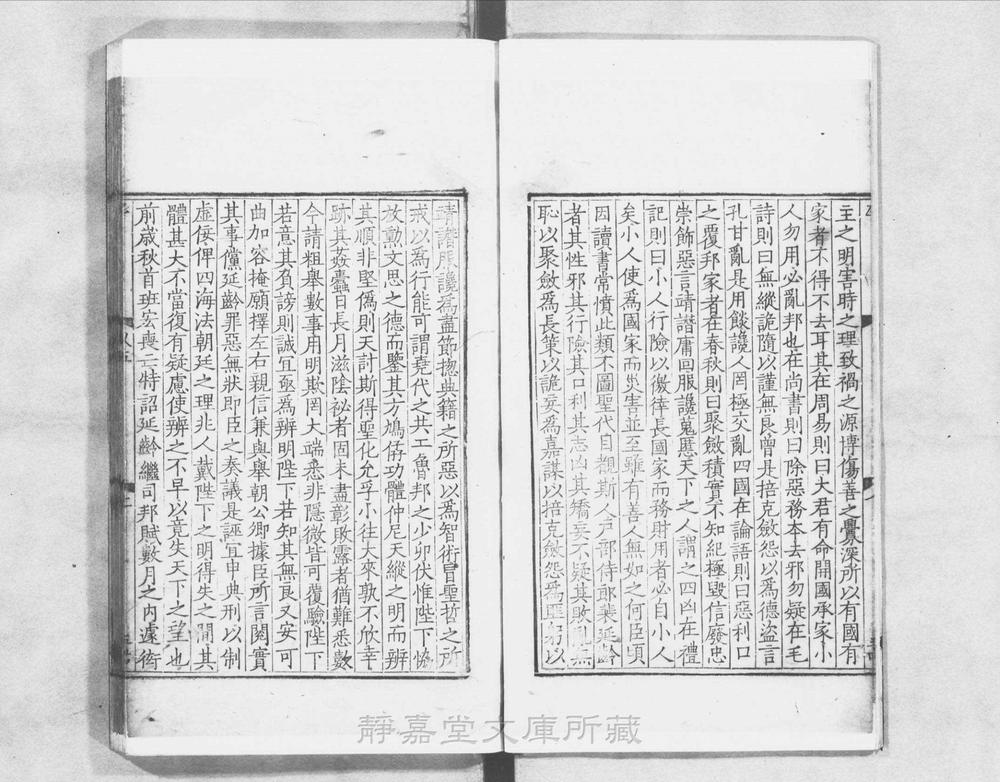 主之明害時之理致禍之源博傷善之釁深所以有國有
家者不得不去耳其在周易則曰大君有命開國承家小
人勿用必亂邦也在尚書則曰除惡務本去邪勿疑在毛
詩則曰無縱詭隨以謹無良曾是掊克斂怨以爲德盜言
孔甘亂是用餤讒人罔極交亂四國在論語則曰惡利口
之覆邦家者在春秋則曰聚斂積實不知紀極毀信廢忠
崇飾惡言靖譖庸回服讒蒐慝天下之人謂之四凶在禮
記則曰小人行險以徼倖長國家而務財用者必自小人
矣小人使爲國家而災害並至雖有善人無如之何臣頃
因讀書常憤此類不圖聖代目覩斯人戸部侍郎裴延齡
者其性邪其行險其口利其志凶其矯妄不疑其敗亂無
恥以聚斂爲長策以詭妄爲嘉謀以掊克斂怨爲匪躬以
靖譖服讒爲盡節揔典籍之所惡以爲智術冒聖哲之所
戒以爲行能可謂堯代之共工魯邦之少卯伏惟陛下協
放勳文思之德而鑒其方鳩僝功體仲尼天縱之明而辨
其順非堅僞則天討斯得聖化允孚小往大來孰不欣幸
跡其姦蠹日長月滋陰祕者固未盡彰敗露者猶難悉數
今請粗舉數事用明欺罔大端悉非隱微皆可覆驗陛下
若意其負謗則誠宜亟爲辨明陛下若知其無良又安可
曲加容掩願擇左右親信兼與舉朝公卿據臣所言閱實
其事儻延齡罪惡無狀即臣之奏議是誣宜申典刑以制
虛佞俾四海法朝廷之理非人戴陛下之明得失之間其
體甚大不當復有疑慮使辨之不早以竟失天下之望也
前歲秋首班宏喪亡特詔延齡繼司邦賦數月之內遽衒
靜嘉堂文庫所藏